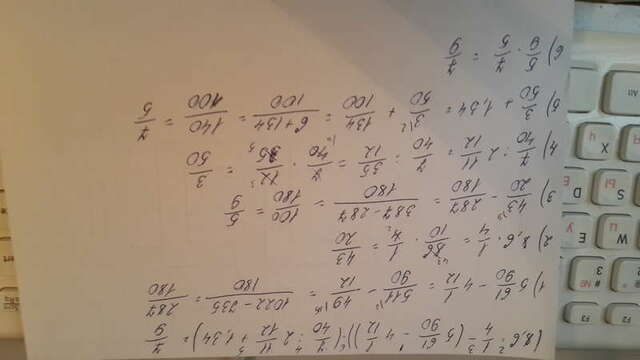 (8,6 · 1/4 - (5 61/90 - 4 1/12)) · (7/40 : 2 11/12 + 1,34) = 7/9
1) 5 61/90 - 4 1/12 = 511/90 - 49/12 = 1022-735/180 = 287/180
2) 8,6 · 1/4 = 86/10 · 1/4 = 43/20
3) 43/20 - 287/180 = 387-287/180 = 100/180 = 5/9
4) 7/40 : 2 11/12 = 7/40 : 35/12 = 7/40 · 12/35 = 3/50
5) 3/50 + 1,34 = 3/50 + 134/100 = 6+134/100 = 140/100 = 7/5
6) 5/9 · 7/5 = 7/9